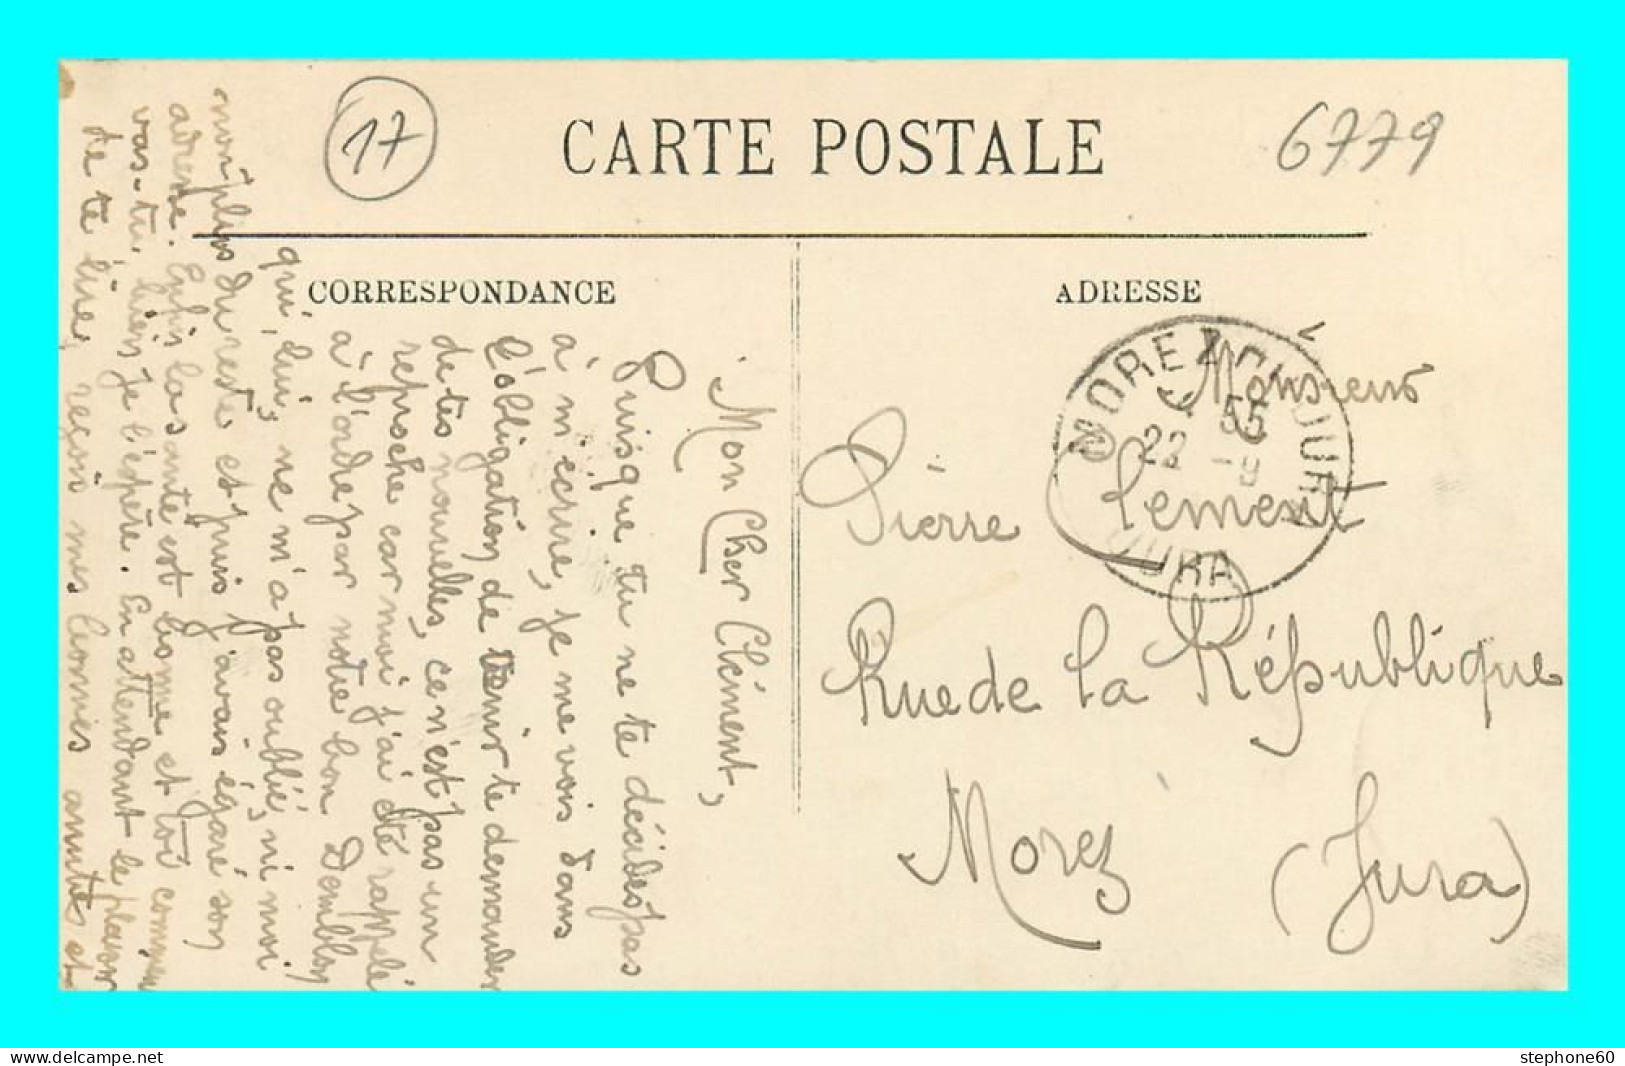 17
CARTE POSTALE
6779
CORRESPONDANCE
ADRESSE
Mon Cher Clément,
Puisque tu ne te décides pas
à m'écrire, je me vois dans
l'obligation de venir te demander
de tes nouvelles, ce n'est pas un
reproche car moi j'ai été rappelé
à l'ordre par notre bon
qui, lui, ne m'a pas oublié, ni moi
non plus du reste et puis j'avais égaré son
adresse. Enfin la santé est bonne et toi comment
vas-tu, bien je l'espère. En attendant le plaisir
de te lire, reçois mes bonnes amitiés et
MOREZ-DU-JURA
JURA
Monsieur
Pierre Cement
Rue de la République
Morez (Jura)
stephone60